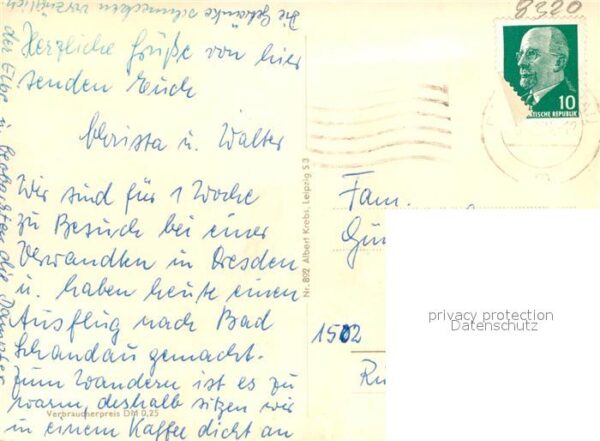 Herzliche Grüße von hier
senden Euch
Christa u. Walter
Wir sind für 1 Woche
zu Besuch bei einer
Verwandten in Dresden
u. haben heute einen
Ausflug nach Bad
Schandau gemacht.
Zum Wandern ist es zu
warm, deshalb sitzen wir
in einem Kaffee dicht an
der Elbe u. beobachten die Dampfer.
Die Getränke schmecken vorzüglich
Verbraucherpreis DM 0,25
Nr. 892 Albert Krebs, Leipzig S 3
8320
10
TSCHE REPUBLIK
Fam.
Gün
1502
privacy protection
Datenschutz